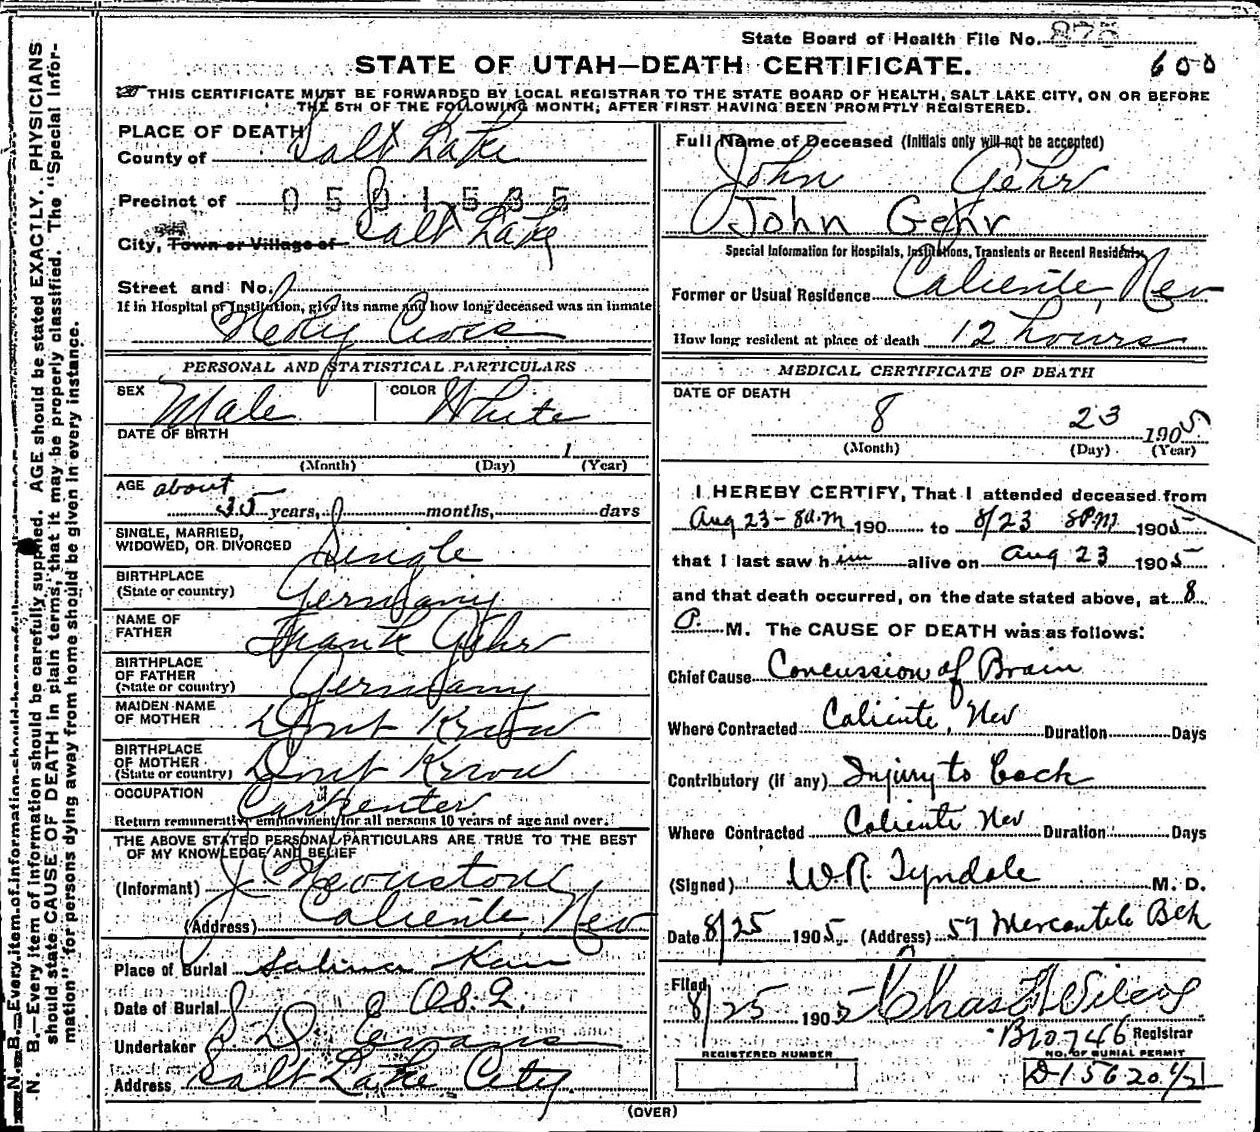 State Board of Health File No. 875
600
STATE OF UTAH—DEATH CERTIFICATE.
THIS CERTIFICATE MUST BE FORWARDED BY LOCAL REGISTRAR TO THE STATE BOARD OF HEALTH, SALT LAKE CITY, ON OR BEFORE
THE 5TH OF THE FOLLOWING MONTH, AFTER FIRST HAVING BEEN PROMPTLY REGISTERED.
N. B.—Every item of information should be carefully supplied. AGE should be stated EXACTLY. PHYSICIANS
should state CAUSE OF DEATH in plain terms, that it may be properly classified. The "Special Infor-
mation" for persons dying away from home should be given in every instance.
PLACE OF DEATH
County of Salt Lake
Precinct of 0501535
City, Town or Village of Salt Lake
Street and No.
If in Hospital or Institution, give its name and how long deceased was an inmate
Holy Cross
PERSONAL AND STATISTICAL PARTICULARS
SEX Male COLOR White
DATE OF BIRTH
1
(Month) (Day) (Year)
AGE about
35 years, months, days
SINGLE, MARRIED,
WIDOWED, OR DIVORCED Single
BIRTHPLACE
(State or country) Germany
NAME OF
FATHER Frank Gehr
BIRTHPLACE
OF FATHER
(State or country) Germany
MAIDEN NAME
OF MOTHER Dont Know
BIRTHPLACE
OF MOTHER
(State or country) Dont Know
OCCUPATION Carpenter
Return remunerative employment for all persons 10 years of age and over.
THE ABOVE STATED PERSONAL PARTICULARS ARE TRUE TO THE BEST
OF MY KNOWLEDGE AND BELIEF
(Informant) J
(Address) Caliente, Nev
Place of Burial Salina Kan
Date of Burial
Undertaker S. D. Evans
Address Salt Lake City
Full Name of Deceased (Initials only will not be accepted)
John Gehr
John Gehr
Special Information for Hospitals, Institutions, Transients or Recent Residents.
Former or Usual Residence Caliente, Nev
How long resident at place of death 12 hours
MEDICAL CERTIFICATE OF DEATH
DATE OF DEATH
8 23 1905
(Month) (Day) (Year)
I HEREBY CERTIFY, That I attended deceased from
Aug 23-8a.m 190 to 8/23 8PM 1905
that I last saw him alive on Aug 23 1905
and that death occurred, on the date stated above, at 8
P. M. The CAUSE OF DEATH was as follows:
Chief Cause Concussion of Brain
Where Contracted Caliente, Nev Duration Days
Contributory (if any) Injury to back
Where Contracted Caliente Nev Duration Days
(Signed) W.R. Tyndale M. D.
Date 8/25 1905. (Address) 57 Mercantile Blk
Filed
8/25 1905 Chas Wilcox
B10746 Registrar
REGISTERED NUMBER
NO. OF BURIAL PERMIT
D15620 1/2
(OVER)